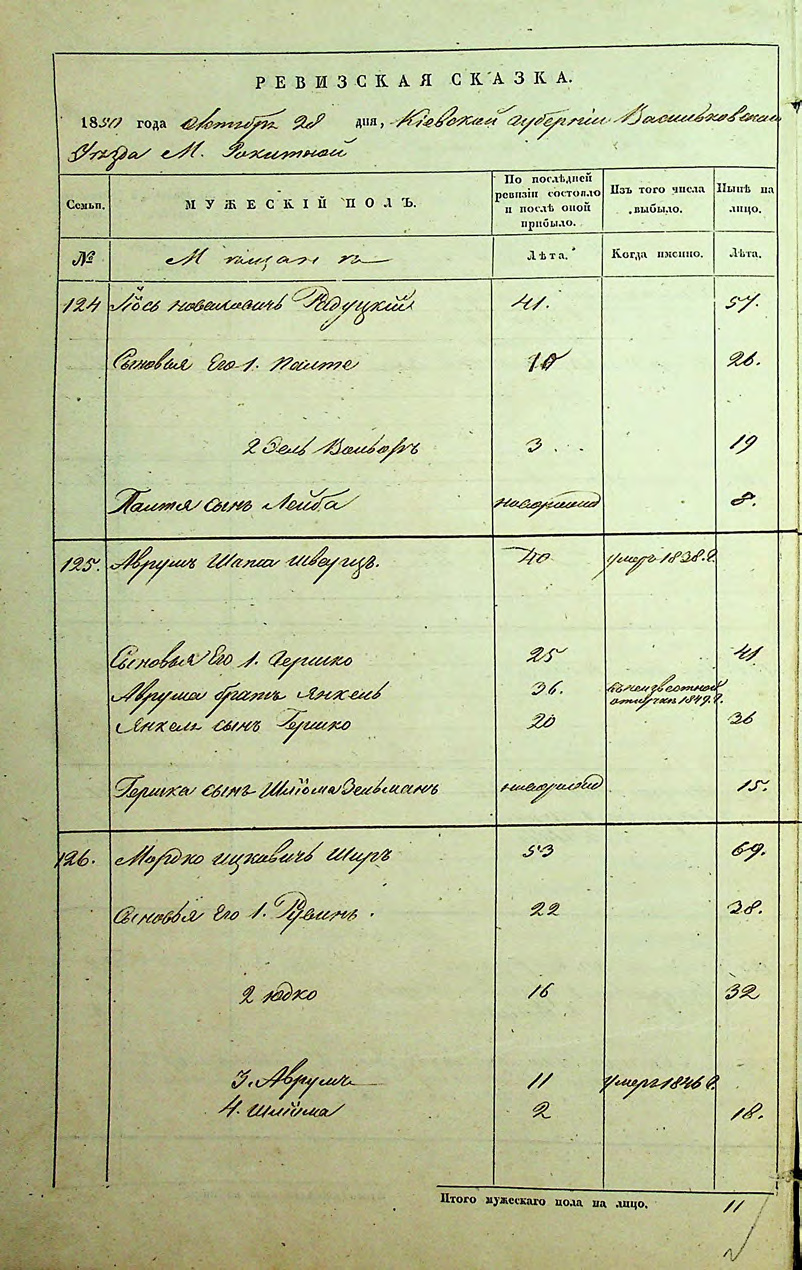 РЕВИЗСКАЯ СКАЗКА.
1850 года Октября 28 дня, Кіевской губерніи Васильковскаго
Уѣзда М. Рокитной
Семьи. МУЖЕСКІЙ ПОЛЪ. По послѣдней ревизіи состояло и послѣ оной прибыло. Изъ того числа выбыло. Нынѣ на лицо.
№ Мѣщане Лѣта. Когда именно. Лѣта.
124 Іось Радуцкій 41. 57.
Сыновья Его 1. Палте 10 26.
2 Зель Вольфъ 3 19
Палтя сынъ Лейба 8.
125. Аврумъ Шапса Шварцъ. 40 умеръ 1838. г.
Сыновья Его 1. Гершко 25 41
Аврума братъ Янкель 36. въ неизвестной
отлучкѣ 1849. г.
Янкеля сынъ Гершко 20 36
Гершка сынъ Шліома Зельманъ 15.
126. Мордко ИцковичъШиръ 53 69.
Сыновья Его 1. Рувинъ. 22 38.
2 Юдко 16 32
3. Аврумъ 11 умеръ 1846 г.
4. Шліома 2 18.
Итого мужескаго пола на лицо. 11